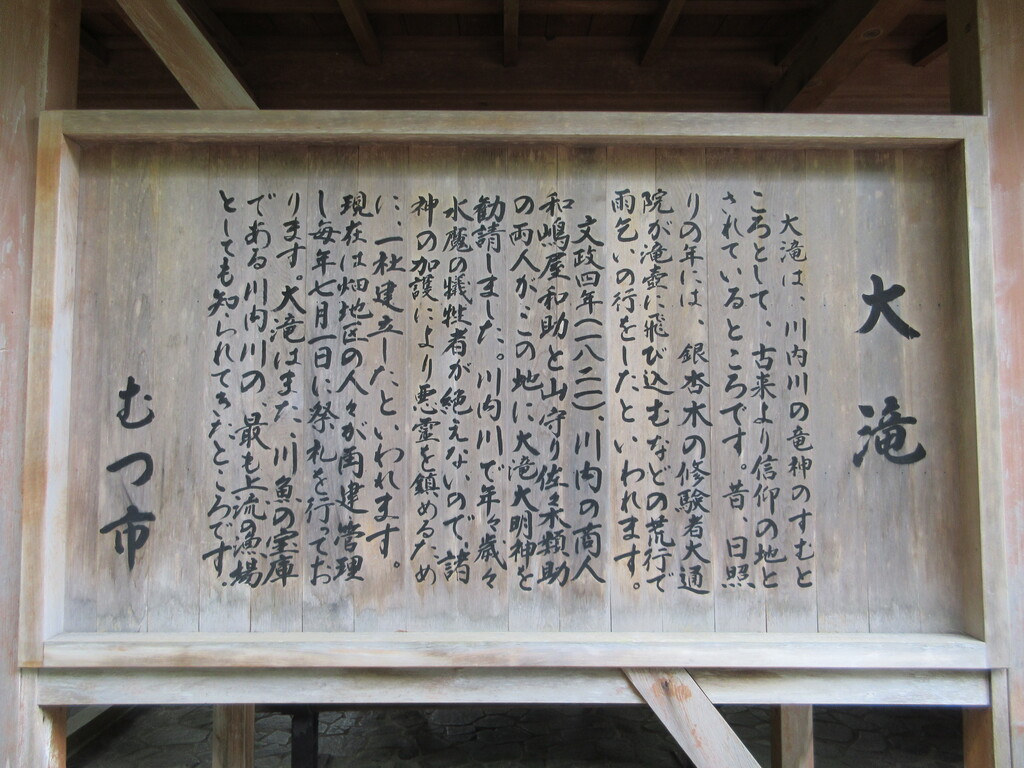 大滝
大滝は、川内川の竜神のすむと
ころとして、古来より信仰の地と
されているところです。昔、日照
りの年には、銀杏木の修験者大通
院が滝壺に飛び込むなどの荒行で
雨乞いの行をしたといわれます。
文政四年(一八二一)、川内の商人
和嶋屋和助と山守り佐々木類助
の両人がこの地に大滝大明神を
勧請しました。川内川で年々歳々
水魔の犠牲者が絶えないので、諸
神の加護により悪霊を鎮めるため
に、一社建立したといわれます。
現在は畑地区の人々が再建管理
し毎年七月一日に祭礼を行ってお
ります。大滝はまた、川魚の宝庫
である川内川の最も上流の漁場
としても知られてきたところです。
むつ市